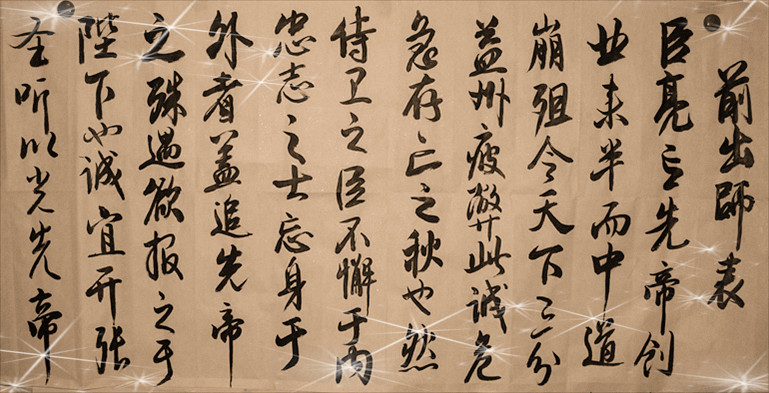 前出師表
臣亮言先帝創
业未半而中道
崩殂今天下三分
益州疲弊此诚危
急存亡之秋也然
侍卫之臣不懈于内
忠志之士忘身于
外者盖追先帝
之殊遇欲报之于
陛下也诚宜开张
圣听以光先帝